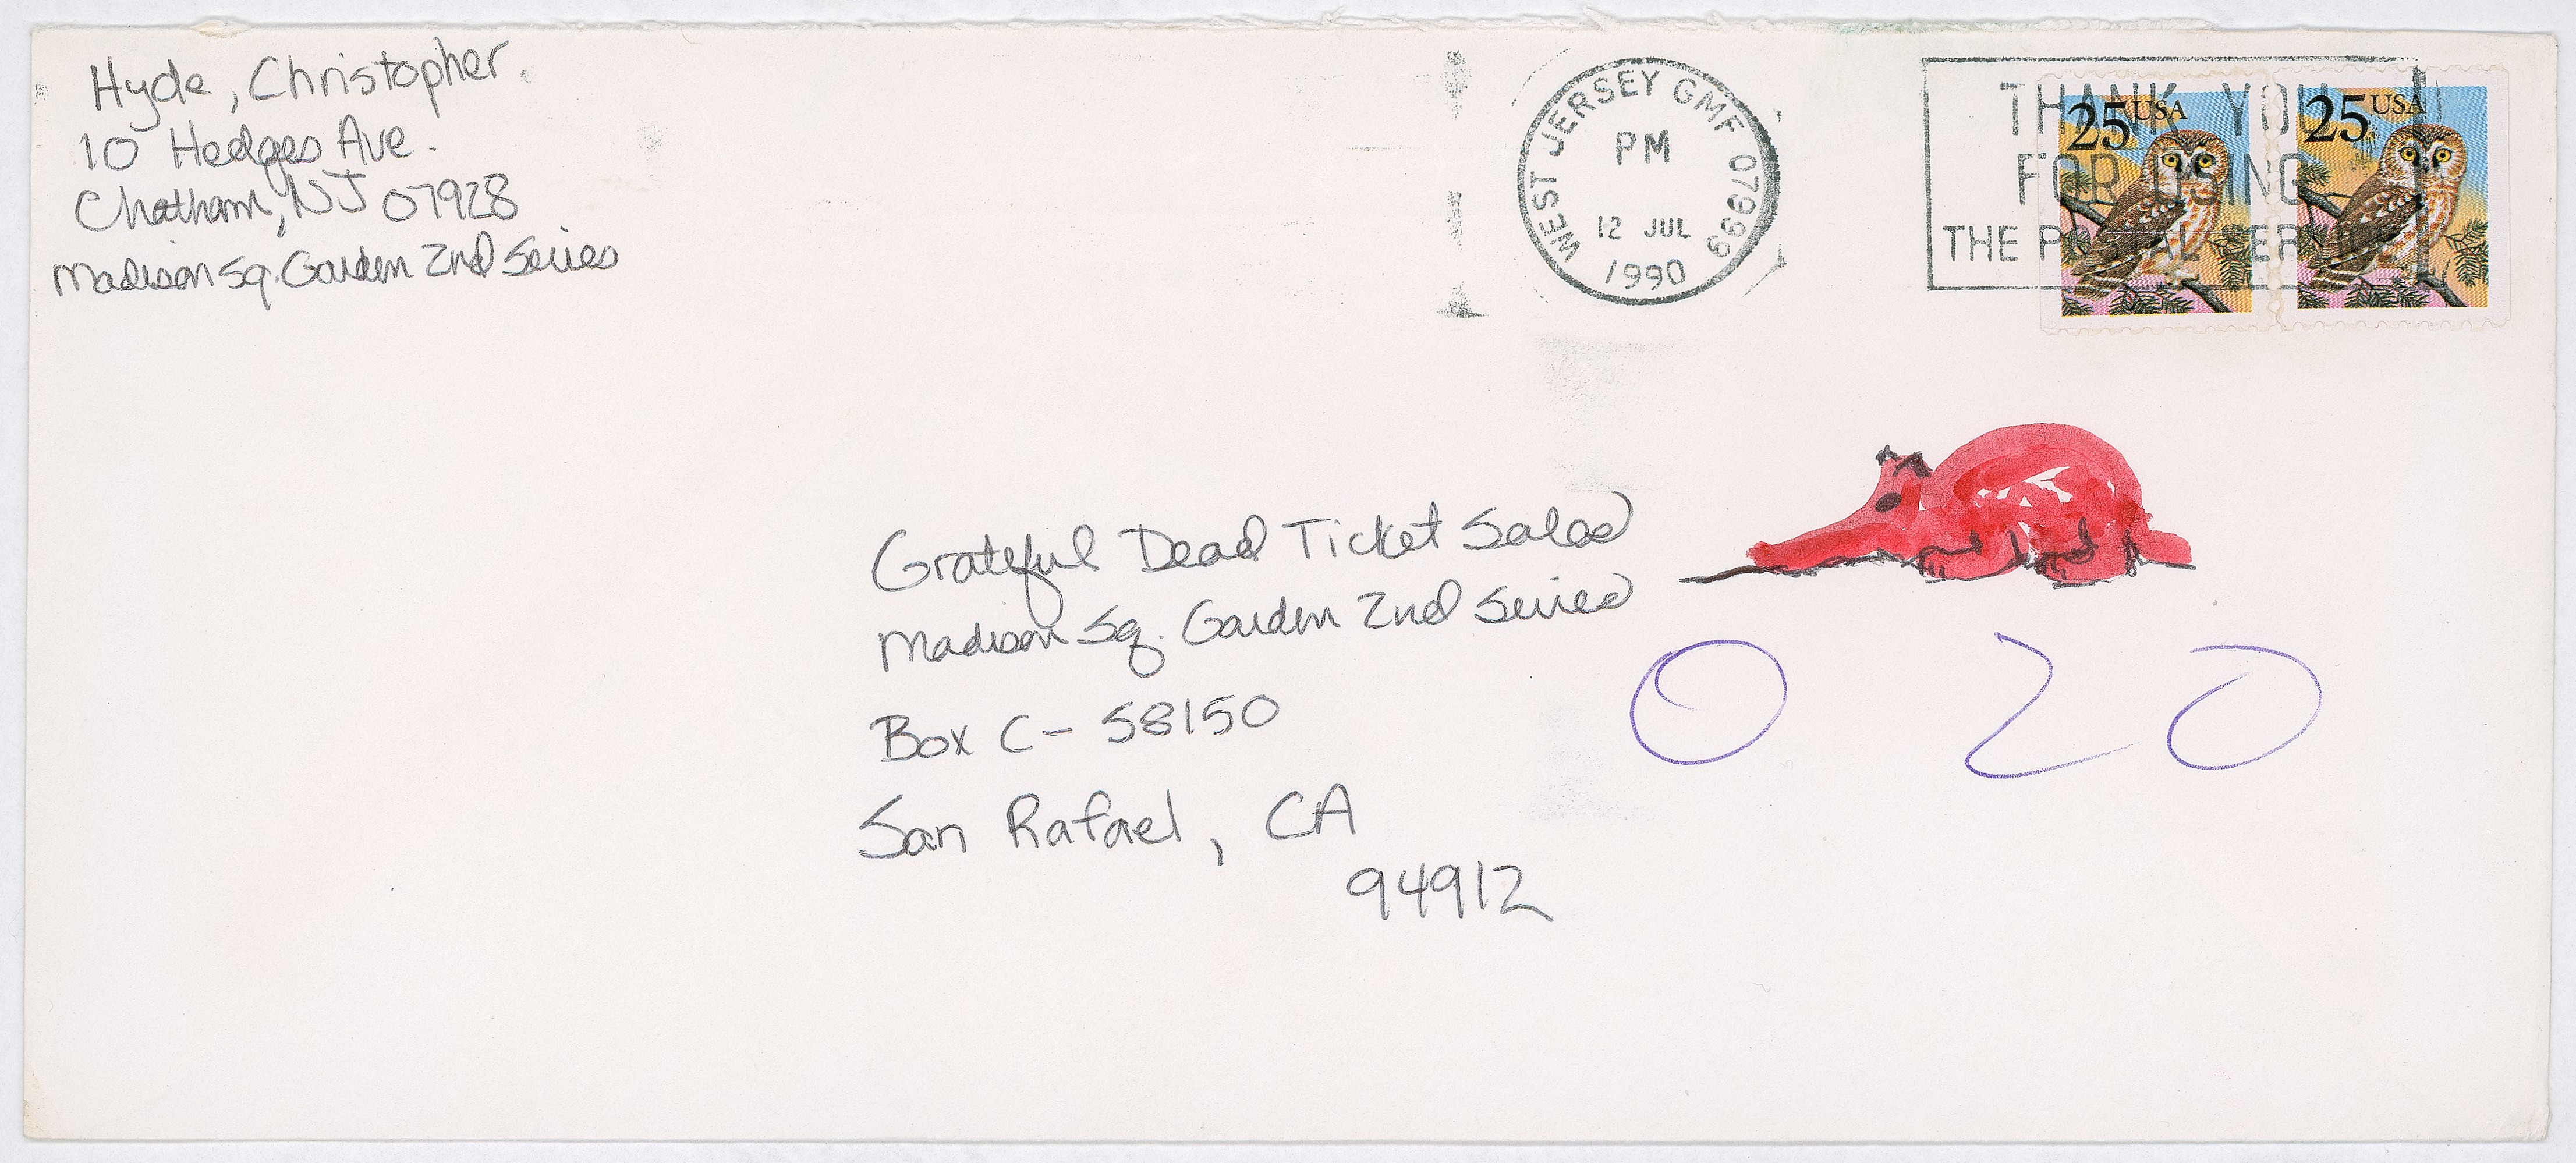 Hyde, Christopher.
10 Hedges Ave.
Chatham, NJ 07928
Madison Sq. Garden 2nd Series
WEST JERSEY GMF 07999
PM
12 JUL
1990
THANK YOU
FOR USING
THE POSTAL SERVICE
25 USA
25 USA
Grateful Dead Ticket Sales
Madison Sq. Garden 2nd Series
Box C- 58150
San Rafael, CA
94912
0 2 0